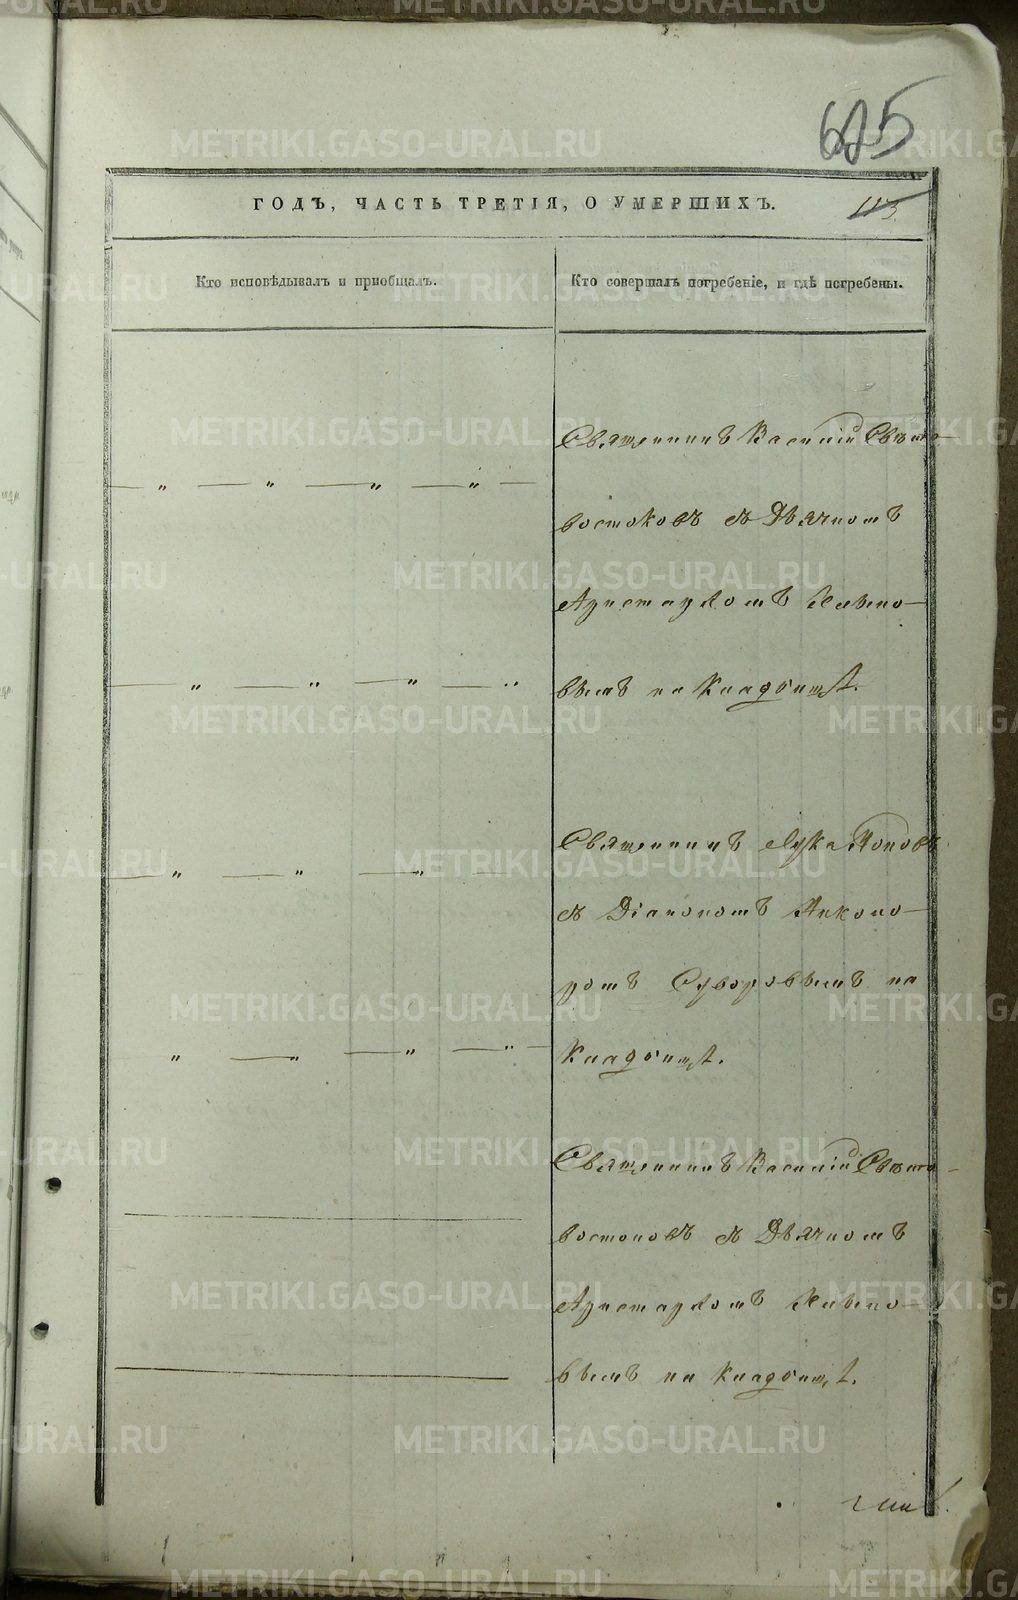 685
ГОДЪ, ЧАСТЬ ТРЕТІЯ, О УМЕРШИХЪ.
113.
Кто исповѣдывалъ и пріобщалъ.
Кто совершалъ погребеніе, и гдѣ погребены.
Священникъ Василій Свѣто-
востоковъ съ Дьячкомъ
Аристархомъ
вымъ на Кладбищѣ.
Священникъ Лука Поповъ
съ Діакономъ Никано-
ромъ Суворовымъ на
Кладбищѣ.
Священникъ Василій Свѣто-
востоковъ съ Дьячкомъ
Аристархомъ
вымъ на Кладбищѣ.
METRIKI.GASO-URAL.RU